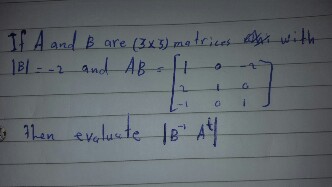 If A and B are (3x3) matrices with
|B| = -2 and AB = [ 1 0 -2
2 1 0
-1 0 1 ]
Then evaluate |B⁻¹ Aᵗ|